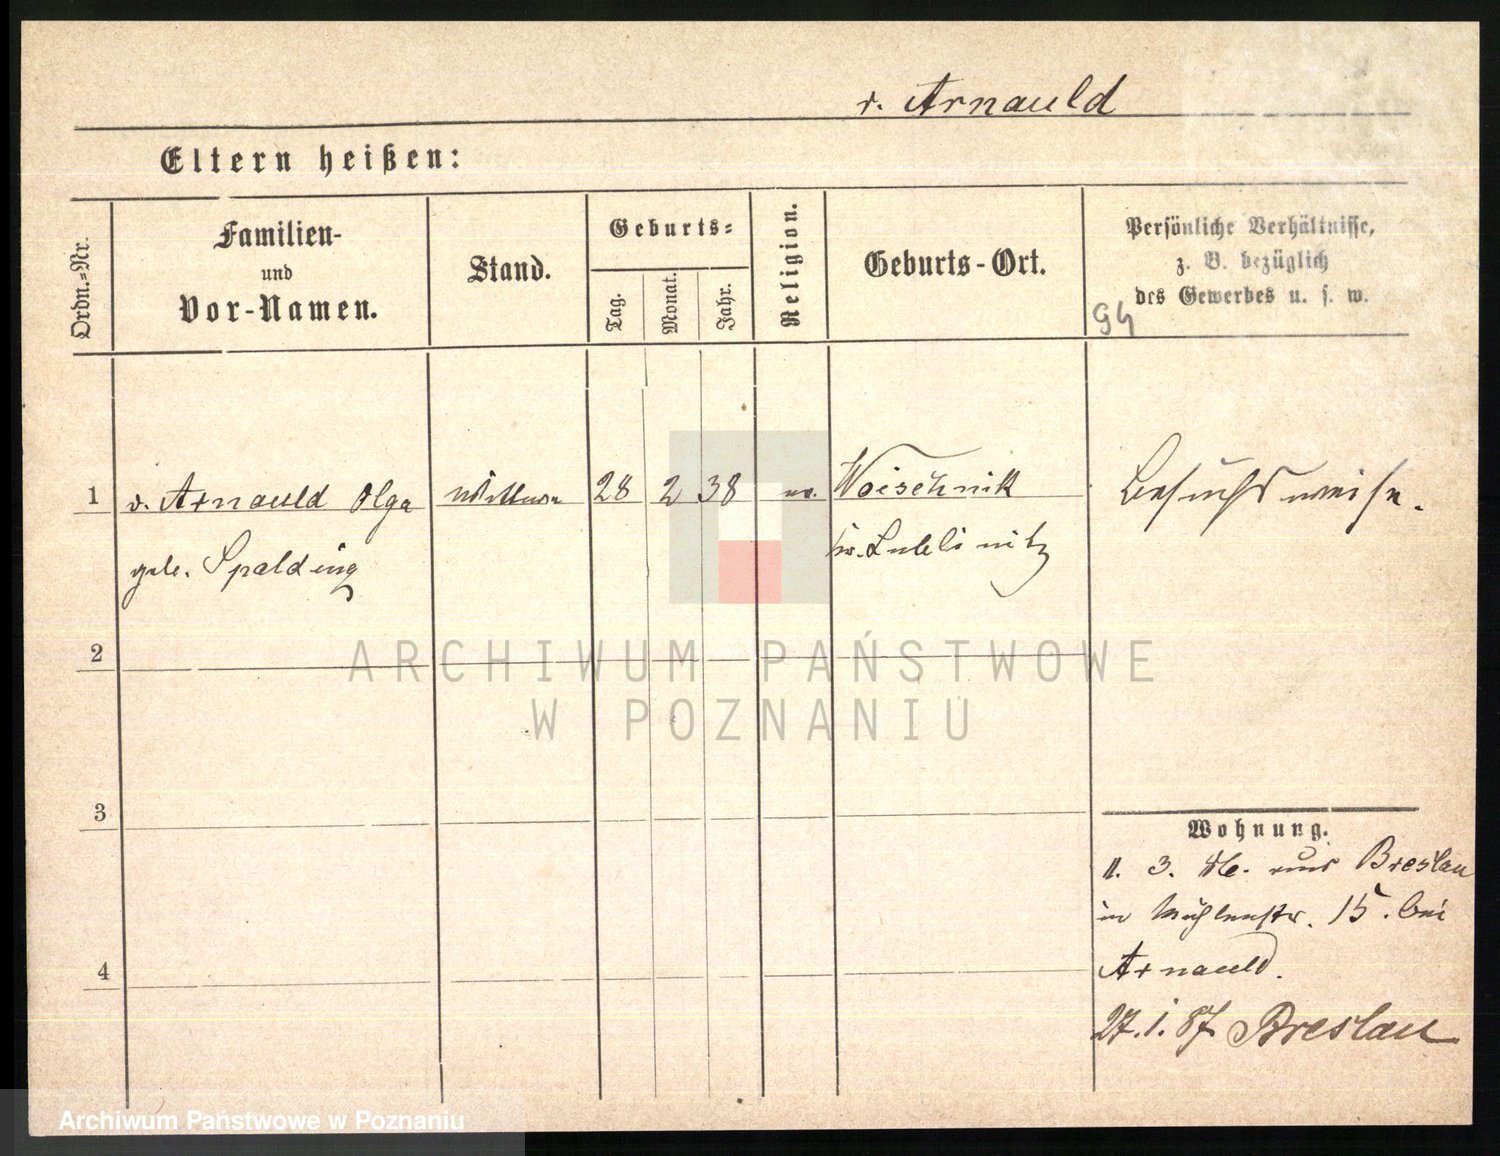 v. Arnauld
Eltern heißen:
Ordn.-Nr.
Familien-
und
Vor-Namen.
Stand.
Geburts-
Tag.
Monat.
Jahr.
Religion.
Geburts-Ort.
Persönliche Verhältnisse,
z. B. bezüglich
des Gewerbes u. s. w.
94
1
v. Arnauld Olga
geb. Spalding
Wittwe
28
2
38
ev.
Woischnik
Kr. Lublinitz
Besuchsweise.
2
3
4
Wohnung.
3. aus Breslau
in Mühlenstr. 15. bei
Arnauld.
27.1.87 Breslau
ARCHIWUM PAŃSTWOWE
W POZNANIU
Archiwum Państwowe w Poznaniu